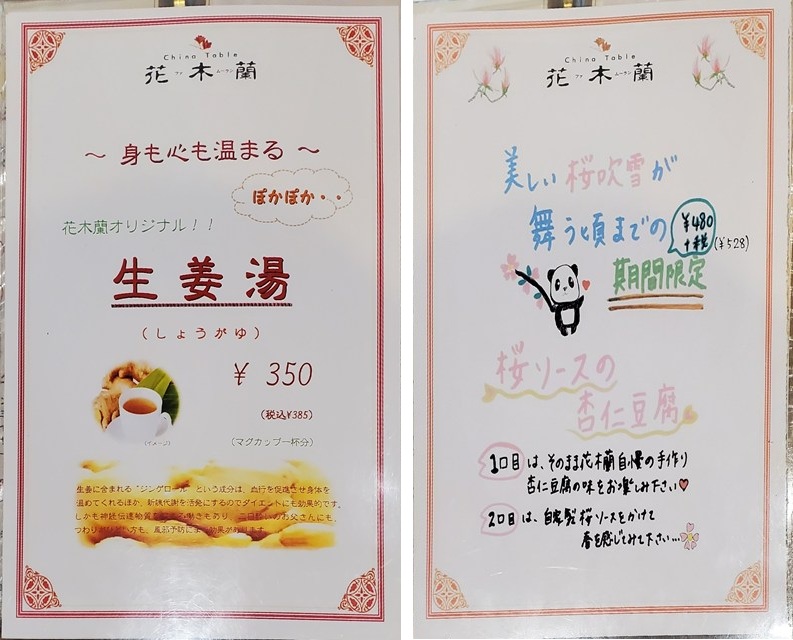 China Table
花木蘭
ファ ムーラン
～ 身も心も温まる ～
ぽかぽか・・
花木蘭オリジナル！！
生姜湯
(しょうがゆ)
¥ 350
(税込¥385)
(イメージ)
(マグカップ一杯分)
生姜に含まれる"ジンゲロール"という成分は、血行を促進させ身体を
温めてくれるほか、新陳代謝を活発にするのでダイエットにも効果的です。
しかも神経伝達物質
お父さんにも、
つわり
風邪予防にも
効果があります。
China Table
花木蘭
ファ ムーラン
美しい桜吹雪が
舞う頃までの
¥480
+税
(¥528)
期間限定
桜ソースの
杏仁豆腐
1口目は、そのまま花木蘭自慢の手作り
杏仁豆腐の味をお楽しみ下さい♥
2口目は、自家製桜ソースをかけて
春を感じてみて下さい…